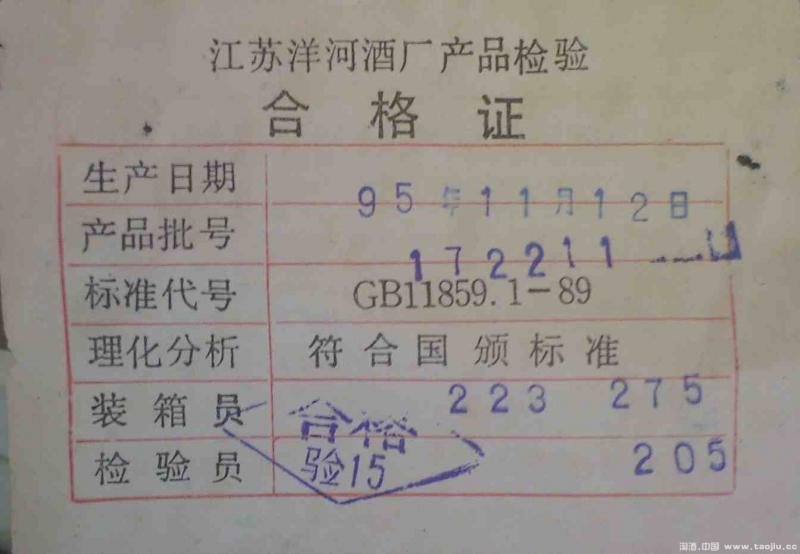 江苏洋河酒厂产品检验
合格证
生产日期 95年11月12日
产品批号 172211
标准代号 GB11859.1-89
理化分析 符合国颁标准
装箱员 223 275
合格
检验员 验15 205
淘酒.中国 www.taojiu.cc